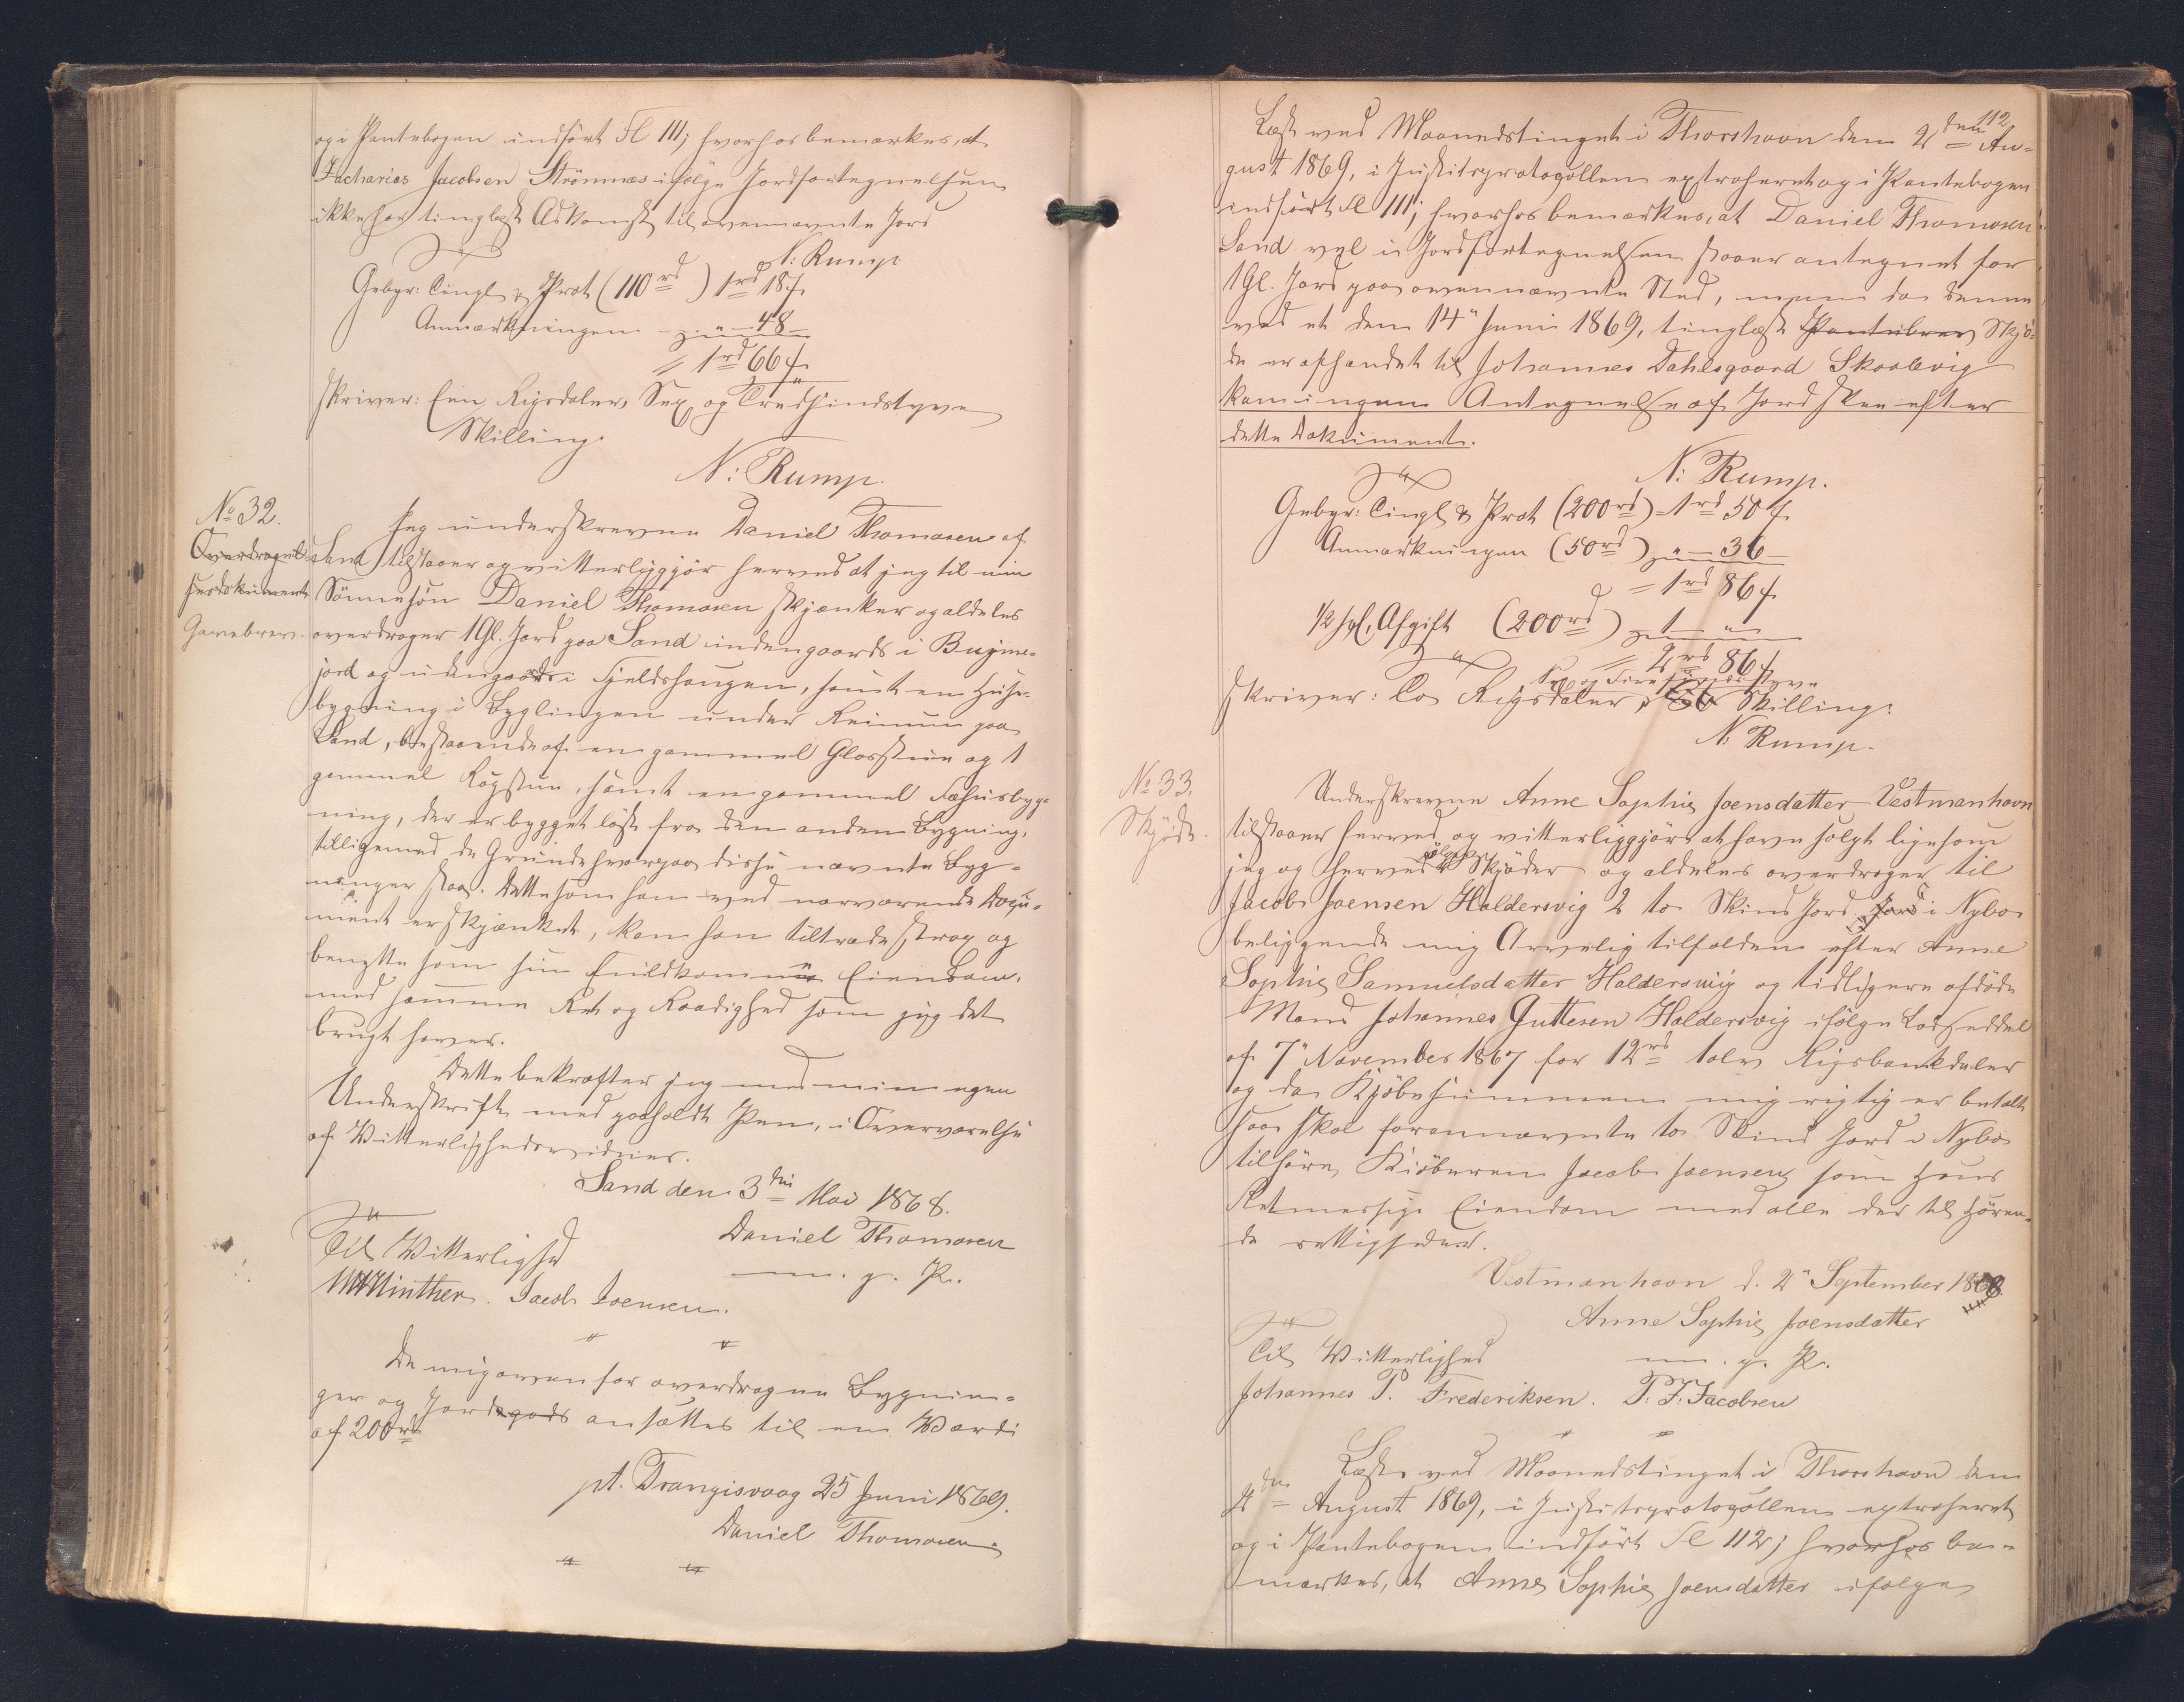 og i Pantebogen indført Fl 111; hvorhos bemærkes, at
Zacharias Jacobsen Strømnæs ifølge Jordfortegnelsen
ikke har tinglæst Adkomst til ovennævnte Jord
N: Rump
Gebyr: Tingl & Prot (110 rd) 1 rd 18 f
Anmærkningen " 48
= 1 rd 66 f
skriver: Een Rigsdaler, Sex og Tredsindstyve
Skilling.
N: Rump.
No 32.
Overdragel-
sesdokument
Gavebrev.
Jeg underskrevne Daniel Thomasen af
Sand tilstaaer og vitterliggjør herved at jeg til min
Sønnesøn Daniel Thomasen skjænker og aldeles
overdrager 1 Gl. Jord paa Sand indengaards i Bujme-
jord og udengaards i Fjeldshaugen, samt en Huus-
bygning i Byglingen under Reinum paa
Sand, bestaaende af en gammel Glasstue og 1
gammel Røgstue, samt en gammel Fæhusbyg-
ning, der er bygget løst fra den anden Bygning,
tilligemed de Grunde hvorpaa disse nævnte Byg-
ninger staa. Dette som han ved nærværende Doku-
ment er skjænket, kan han tiltræde strax og
benytte som sin fuldkomne Eiendom,
med samme Ret og Raadighed som jeg det
brugt haver.
Dette bekræfter jeg med min egen
Underskrift med paaholdt Pen, i Overværelse
af Vitterlighedsvidner.
Sand den 3die Mai 1868.
Til Vitterlighed
Daniel Thomasen
m. p. P.
Winther. Jacob Joensen.
De mig ovenfor overdragne Bygnin-
ger og Jordegods ansættes til en Værdi
af 200 rd
pt. Trangisvaag 25 Juni 1869.
Daniel Thomasen
112
Læst ved Maanedstinget i Thorshavn den 2den Au-
gust 1869, i Justitsprotogollen extraheret og i Pantebogen
indført Fl 111; hvorhos bemærkes, at Daniel Thomasen
Sand vel i Jordfortegnelsen staaer antegnet for
1 Gl. Jord paa ovennævnte Sted, men da denne
ved et den 14" Juni 1869, tinglæst Pantebrev Skjø-
de er afhændet til Johannes Dahlsgaard Skaalevig
kan ingen Antegnelse af Jord skee efter
dette Dokument.
N: Rump.
Gebyr: Tingl & Prot (200 rd) = 1 rd 50 f
Anmærkningen (50 rd) " 36
= 1 rd 86 f
1/2 pCt. Afgift (200 rd) 1 "
= 2 rd 86 f
Sex og Firesindstyve
skriver: To Rigsdaler, 86 Skilling.
N: Rump.
No 33.
Skjøde.
Underskrevne Anne Sophie Joensdatter Vestmanhavn
tilstaaer herved og vitterliggjør at have solgt ligesom
jeg og herved sælger Skjøder og aldeles overdrager til
Jacob Joensen Haldersvig 2 to Skind Jord Jord i Nybo
beliggende mig Arvelig tilfalden efter Anne
Sophie Samuelsdatter Haldersvig og tidligere afdøde
Mand Johannes Guttesen Haldersvig ifølge Lodseddel
af 7" November 1867 for 12 rd tolv Rigsbankdaler
og da Kjøbesummen mig rigtig er betalt
saa skal forannævnte to Skind Jord i Nybo
tilhøre Kiøberen Jacob Joensen som Hans
Retmessige Eiendom med alle der til høren-
de rettigheder.
Vestmanhavn d. 2" September 1868
Anne Sophie Joensdatter
Til Vitterlighed
m. p. P.
Johannes P. Frederiksen. P. F. Jacobsen
Læst ved Maanedstinget i Thorshavn den
2den August 1869, i Justitsprotogollen extraheret
og i Pantebogen indført Fl 112; hvorhos be-
mærkes, at Anne Sophie Joensdatter ifølge